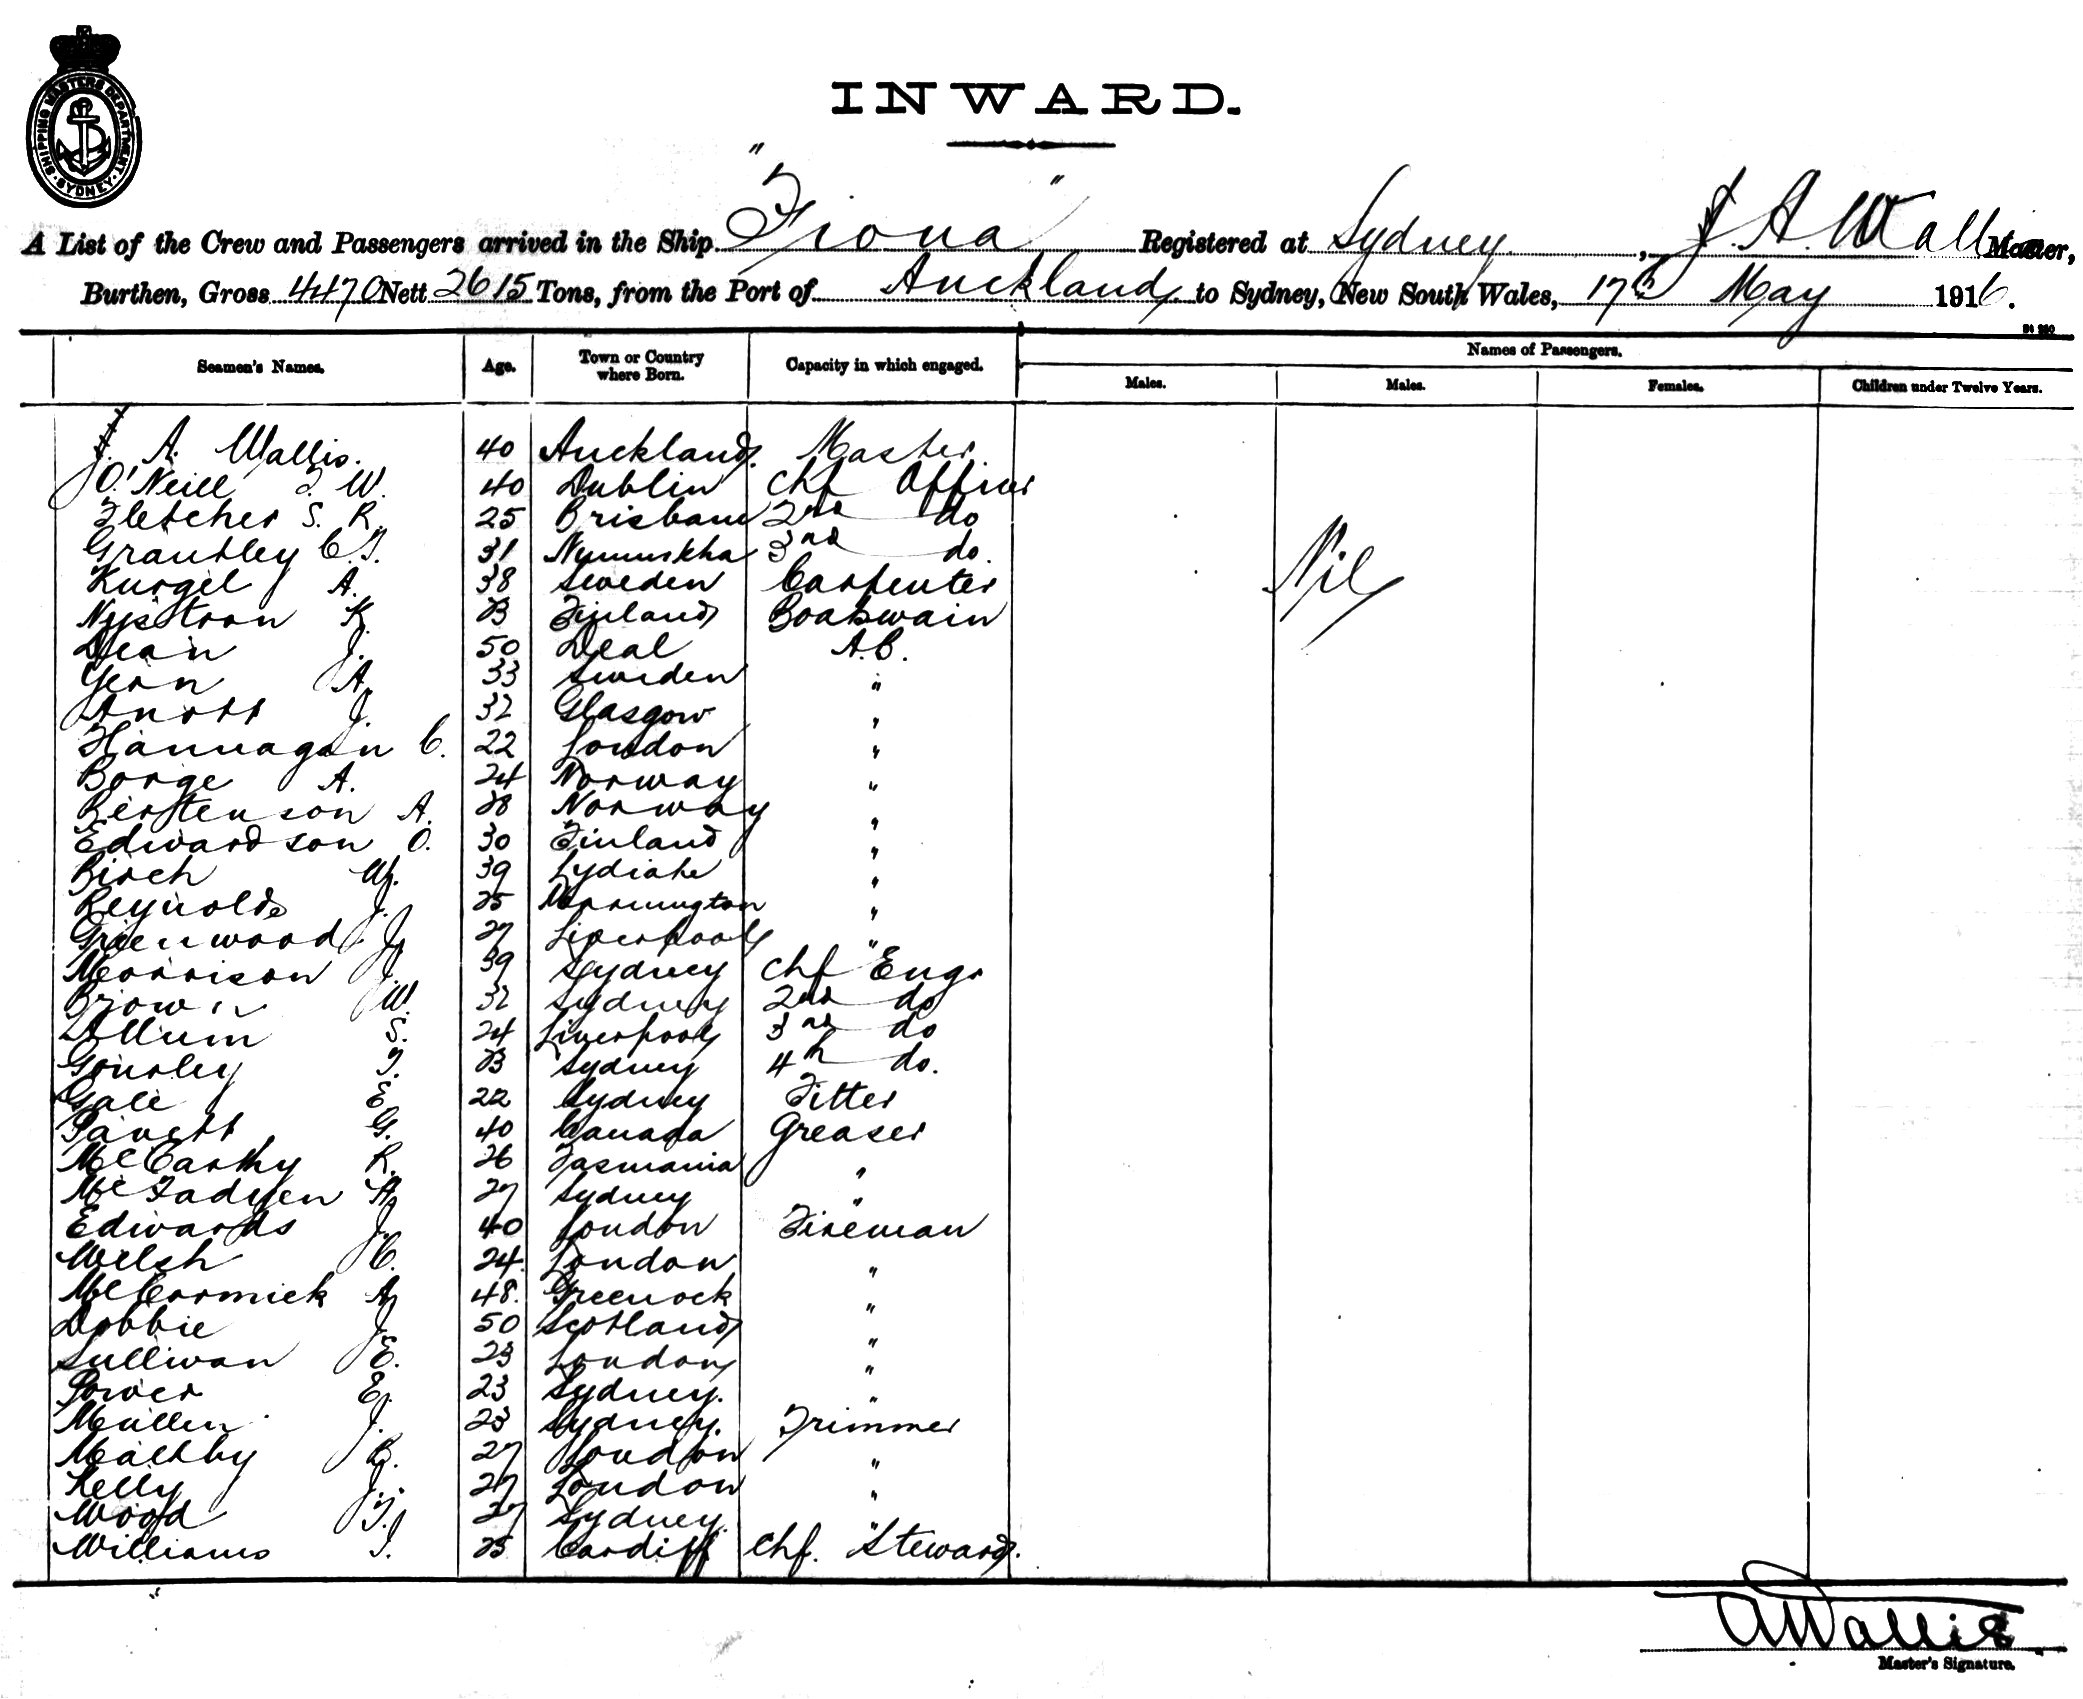 SHIPPING MASTERS DEPARTMENT · SYDNEY ·
INWARD.
A List of the Crew and Passengers arrived in the Ship "Fiona" Registered at Sydney, J. A. Wallis Master,
Burthen, Gross 4470 Nett 2615 Tons, from the Port of Auckland to Sydney, New South Wales, 17th May 1916.
Seamen's Names. Age. Town or Country where Born. Capacity in which engaged. Names of Passengers.
Males. Males. Females. Children under Twelve Years.
A. Wallis. 40 Auckland. Master.
O'Neill J. W. 40 Dublin Chf Officer
Fletcher S. R. 25 Brisbane 2nd do
Grantley C. T. 31 3rd do.
Nil
Kurgel A. 38 Sweden Carpenter
Nystrom K. Finland Boatswain
Dean J. 50 Deal A.B.
Gern A. 33 Sweden "
J. 32 Glasgow "
Hannagan C. 22 London "
Borge A. 24 Norway "
Berntenson A. 28 Norway "
Edwardson O. 30 Finland "
Birch W. 39 Lydiate "
Reynolds J. 25 "
Greenwood J. 27 Liverpool "
Morrison J. 39 Sydney Chf Engr
Brown W. 32 Sydney 2nd do
Allum S. 24 Liverpool 3rd do
Gourley T. Sydney 4th do.
Gale E 22 Sydney Fitter
G. 40 Canada Greaser
McCarthy R. 26 Tasmania "
McFadyen A. 27 Sydney "
Edwards J. 40 London Fireman
Welsh C. 24. London "
McCormick A. 48. Greenock "
Dobbie J. 50 Scotland "
Sullivan E. 23 London "
Power E. 23 Sydney. "
Mullen J. 23 Sydney. Trimmer
Malthy B. 27 London "
Kelly J. 27 London "
Wood T. 27 Sydney. "
Williams T. 25 Cardiff Chf. Steward.
A Wallis
Master's Signature.